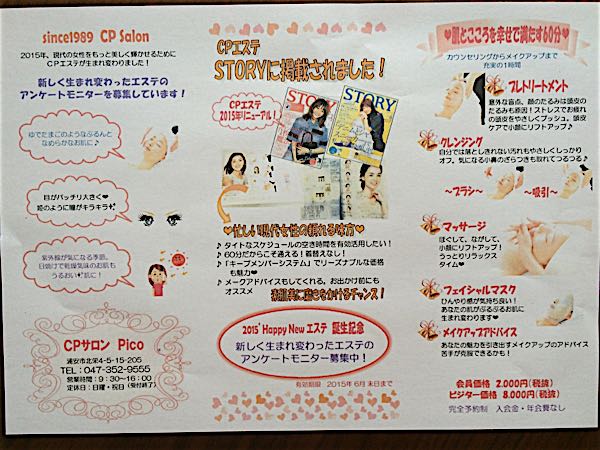 since1989 CP Salon
2015年、現代の女性をもっと美しく輝かせるために
CPエステが生まれ変わりました!
新しく生まれ変わったエステの
アンケートモニターを募集しています!
ゆでたまごのようなぷるんと
なめらかなお肌に♪
目がパッチリ大きく♥
姫のように瞳がキラキラ
紫外線が気になる季節。
日焼けで乾燥気味のお肌も
うるおい
CPサロン Pico
浦安市北栄4-5-15-205
TEL:047-352-9555
営業時間:9:30~16:00
(受付終了)
定休日:日曜・祝日
CPエステ
STORYに掲載されました!
CPエステ
2015年リニューアル!
STORY
STORY
♥忙しい現代女性の頼れる味方♥
♪ タイトなスケジュールの空き時間を有効活用したい!
♪ 60分だからこそ通える!着替えなし!
♪ 「キープメンバーシステム」でリーズナブルな価格
も魅力♥
♪ メークアドバイスもしてくれる。お出かけ前にも
オススメ
素肌美に磨きをかけるチャンス!
2015' Happy New エステ 誕生記念
新しく生まれ変わったエステの
アンケートモニター募集中!
有効期限 2015年6月末日まで
♥肌とこころを幸せで満たす60分♥
カウンセリングからメイクアップまで
充実の1時間
プレトリートメント
意外な盲点、顔のたるみは頭皮の
たるみも原因!ストレスでお疲れ
の頭皮をやさしくプッシュ。頭皮
ケアで小顔にリフトアップ♪
クレンジング
自分では落としきれない汚れもやさしくしっかり
オフ。気になる小鼻のざらつきも取れてつるつる♪
~ブラシ~
~吸引~
マッサージ
ほぐして、ながして、
小顔にリフトアップ!
うっとりリラックス
タイム♥
フェイシャルマスク
ひんやり感が気持ち良い!
あなたの肌がぷるぷるお肌に
生まれ変わります♥
メイクアップアドバイス
あなたの魅力を引き出すメイクアップのアドバイス
苦手が克服できるかも!
会員価格 2,000円(税抜)
ビジター価格 8,000円(税抜)
完全予約制 入会金・年会費なし